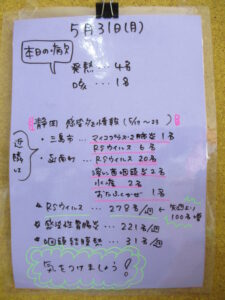 5月31日(月)
本日の病欠
発熱…4名
咳…1名
静岡 感染症情報(5/17〜23)
近隣は
・三島市…マイコプラズマ肺炎 1名
RSウイルス 6名
・函南町…RSウイルス 20名
溶連菌咽頭炎 2名
水痘 2名
おたふくかぜ 1名
RSウイルス…278名/週 ← 先週より
100名増
感染性胃腸炎…221名/週
咽頭結膜熱…31名/週
気をつけましょう!